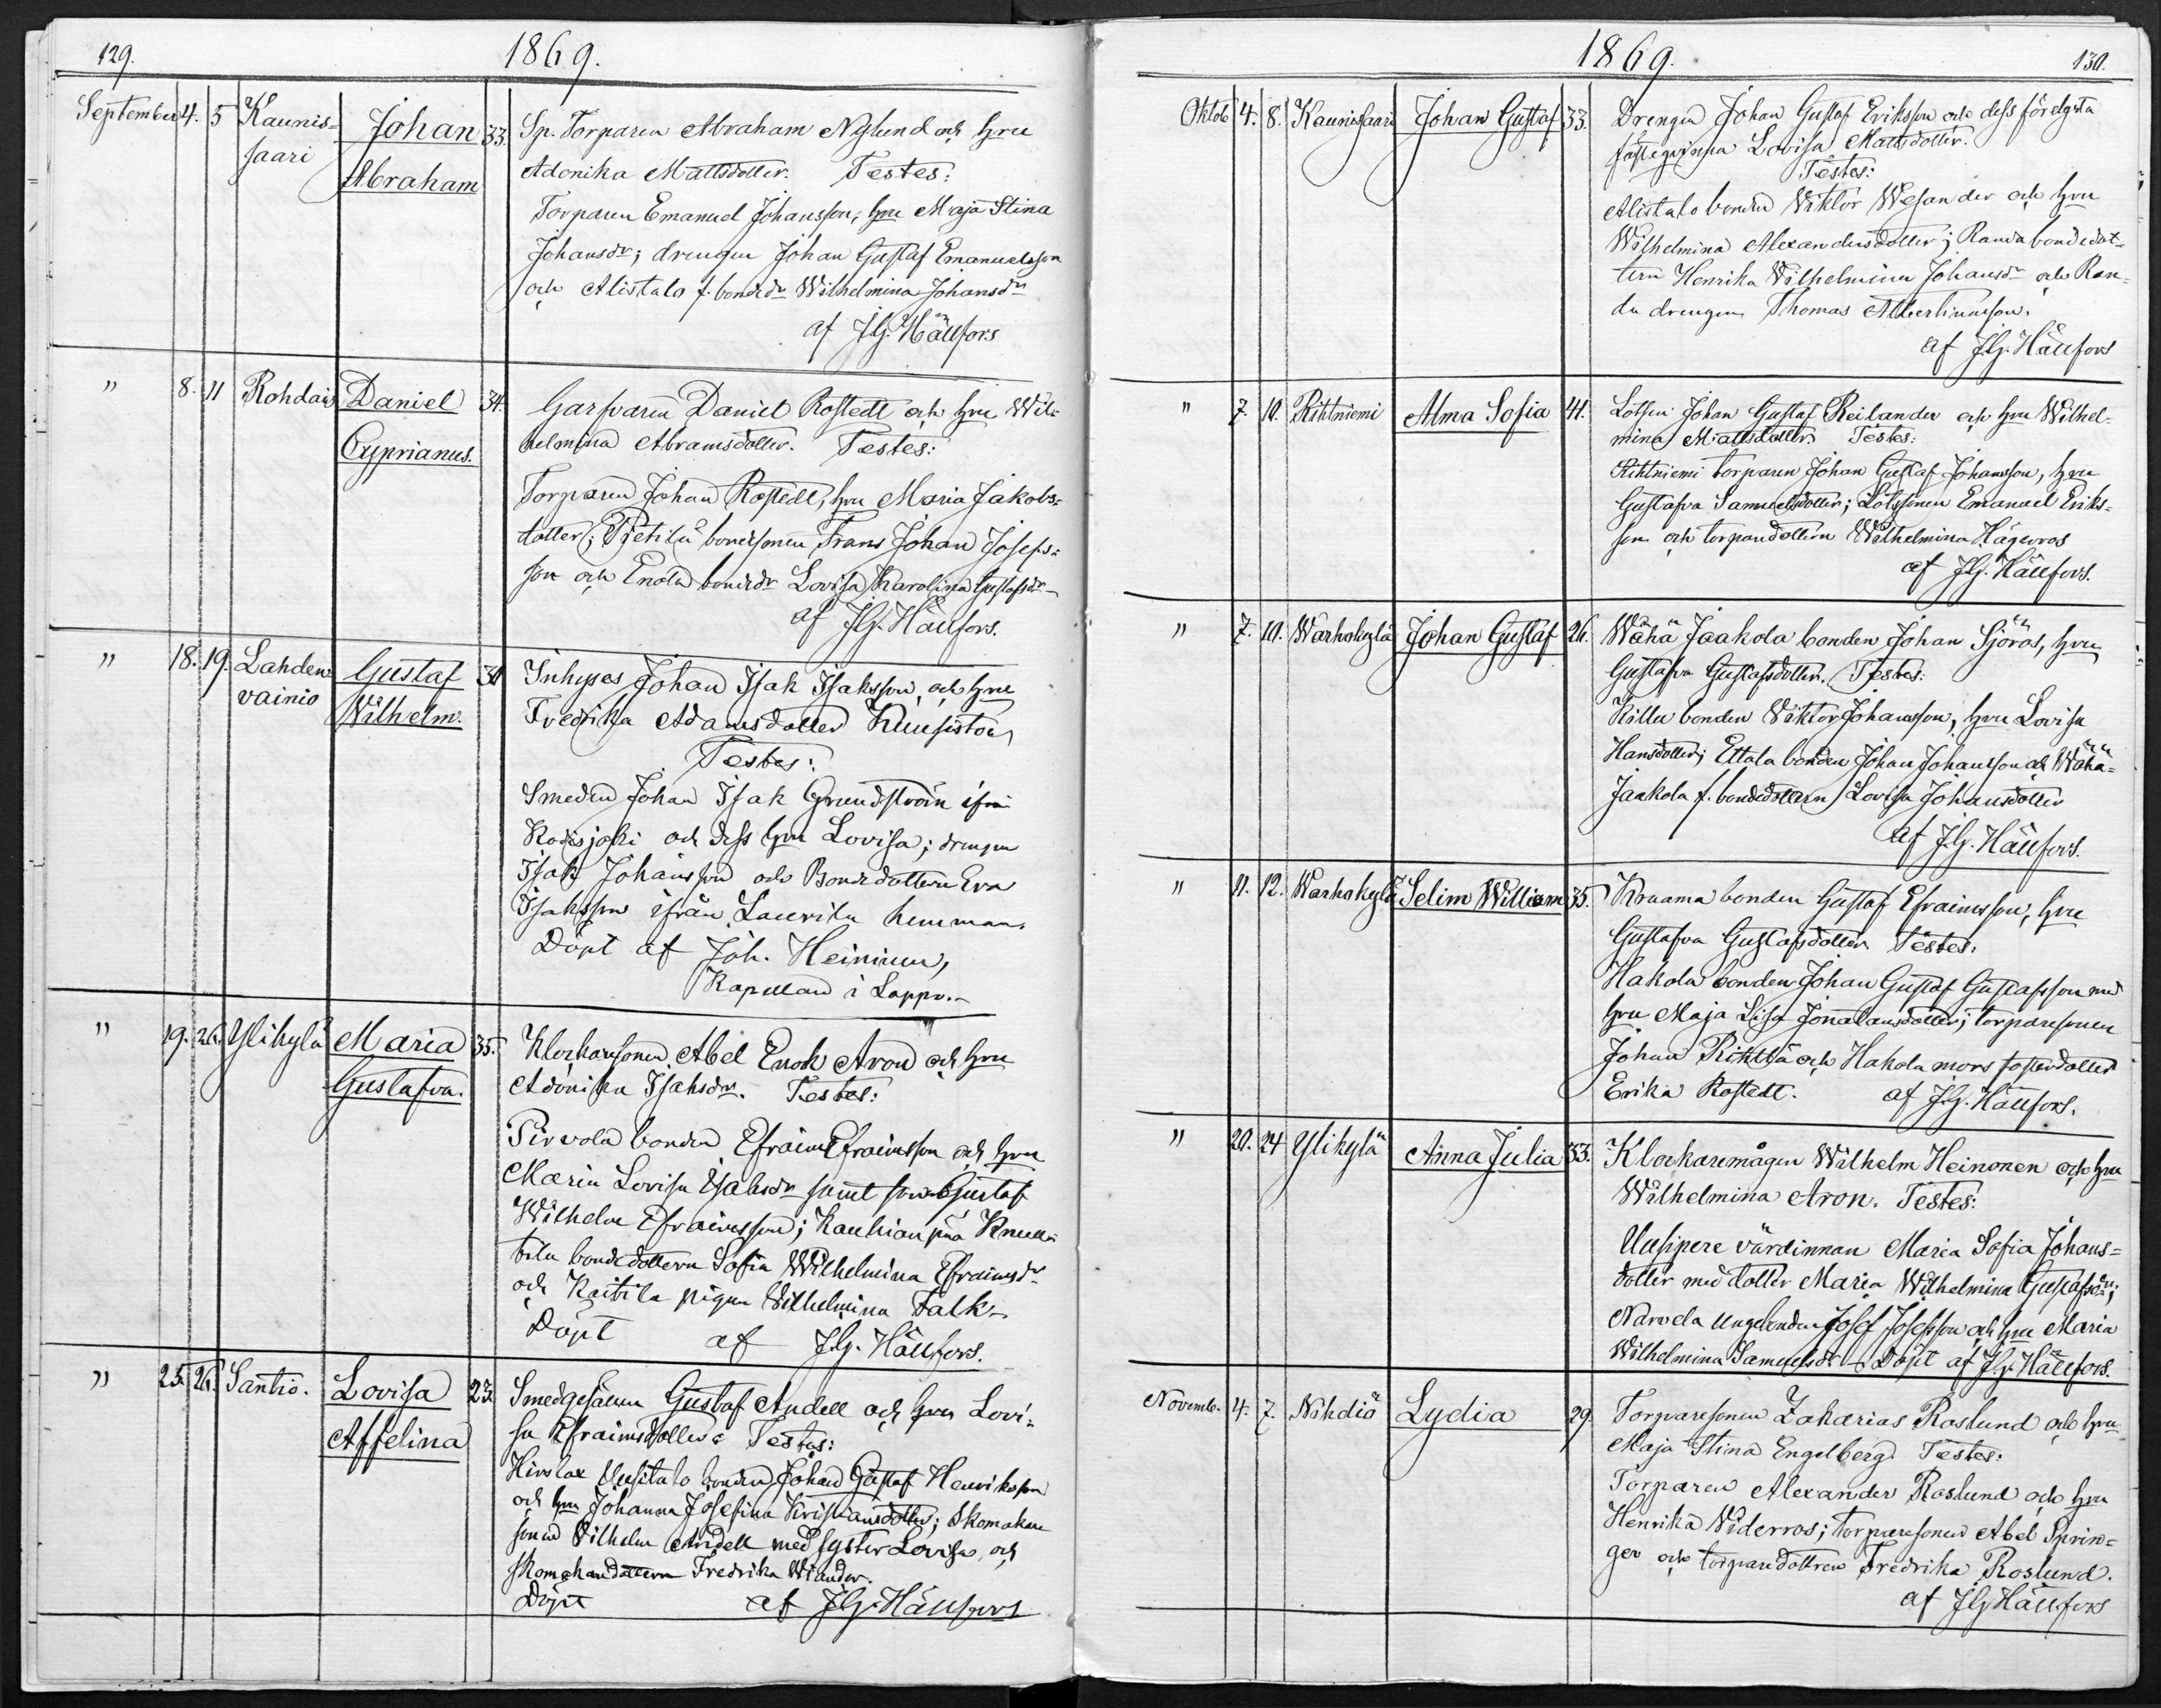 129.
1869.
September 4. 5 Kaunis= Johan 33. Sp. Torparen Abraham Nylund och hru
saari Abraham Adonika Mattsdotter. Testes:
Torparen Emanuel Johansson, hru Maja Stina
Johansdr; drengen Johan Gustaf Emanuelsson
och Alistalo f. bondedr Wilhelmina Johansdr
af J.G. Hällfors
" 8. 11 Rohdais Daniel 34. Garfvaren Daniel Rostedt och hru Wil=
Cyprianus. helmina Abramsdotter. Testes:
Torparen Johan Rostedt, hru Maria Jakobs=
dotter; Pietilä bondesonen Frans Johan Josefs=
son och Enola bondedr Lovisa Karolina Gustafsdr
af J.G. Hällfors.
" 18. 19. Lahden Gustaf 30 Inhyses Johan Isak Isaksson och hru
vainio Wilhelm. Fredrika Adamsdotter Kuusisto
Testes:
Smeden Johan Isak Grundström ifrån
Kodisjoki och dess hru Lovisa; drengen
Isak Johansson och Bondedottern Eva
Isaksson ifrån Laurila hemman.
Döpt af Joh. Heininen,
Kapellan i Lappo.
" 19. 26. Ylikylä Maria 35. Klockarsonen Abel Enok Aron och hru
Gustafva. Adonika Isaksdr. Testes:
Pirvola bonden Efraim Efraimsson och hru
Maria Lovisa Isaksdr samt son Gustaf
Wilhelm Efraimsson; Kauhianpää Knuu
tila bondedottern Sofia Wilhelmina Efraimsdr
och Kaitila pigan Wilhelmina Falk.
Döpt af J.G. Hällfors.
" 25. 26. Santio. Lovisa 23 Smedgesällen Gustaf Andell och hru Lovi=
Affelina sa Efraimsdotter. Testes:
Hirslax Uusitalo bonden Johan Gustaf Henriksson
och hru Johanna Josefina Kristiansdotter; Skomakare
sonen Vilhelm Andell med syster Lovisa, och
skomakaredottern Fredrika Wiander.
Döpt af J.G. Hällfors
1869.
130.
Oktob 4. 8. Kaunissaari Johan Gustaf 33. Drengen Johan Gustaf Eriksson och dess förelgsta
fästeqvinna Lovisa Mattsdotter.
Testes:
Alistalo bonden Viktor Wesander och hru
Wilhelmina Alexandersdotter; Randa bondedot=
tern Henrika Wilhelmina Johansdr och Ran=
da drengen Thomas Albertinusson.
af J.G. Hällfors
" 7. 10. Rihtniemi Alma Sofia 41. Lotsen Johan Gustaf Reilander och hru Wilhel=
mina Mattsdotter. Testes:
Rihtniemi torparen Johan Gustaf Johansson, hru
Gustafva Samuelsdotter; Lotssonen Emanuel Eriks=
son och torparedottern Wilhelmina Hägerros
af J.G. Hällfors.
" 7. 10. Warhokylä Johan Gustaf 26. Wähä Jaakola bonden Johan Sjöros, hru
Gustafva Gustafsdotter. Testes:
Killu bonden Viktor Johansson, hru Lovisa
Hansdotter; Ettala bonden Johan Johansson och Wähä=
Jaakola f. bondedottern Lovisa Johansdotter
af J.G. Hällfors.
" 11. 12. Warhokylä Selim William 35. Kraama bonden Gustaf Efraimsson, hru
Gustafva Gustafsdotter. Testes:
Hakola bonden Johan Gustaf Gustafsson med
hru Maja Lisa Jonatansdotter; torparesonen
Johan Rihtlä och Hakola mors fosterdotter
Erika Rostedt. af J.G. Hällfors.
" 20. 24 Ylikylä Anna Julia 33. Klockaremågen Wilhelm Heinonen och hru
Wilhelmina Aron. Testes:
Uusipere värdinnan Maria Sofia Johans=
dotter med dotter Maria Wilhelmina Gustafsdr;
Narvela ungbonden Josef Josefsson och hru Maria
Wilhelmina Samuelsdr. Döpt af J.G. Hällfors.
Novemb. 4. 7. Nihdiö Lydia 29. Torparesonen Zakarias Roslund och hru
Maja Stina Engelberg. Testes:
Torparen Alexander Roslund och hru
Henrika Widerros; torparesonen Abel Sprin=
ger och torparedottren Fredrika Roslund.
af J.G. Hällfors